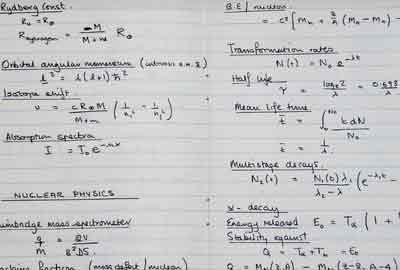 Rydberg Const.
R∞ = R∞
R_hydrogen = M / (M + m) R∞
Orbital angular momentum
l² = l(l+1) ħ²
Isotope shift
ν = c R∞ M / (M+m) (1/n₁² - 1/n₂²)
Absorption spectra
I = I₀ e^-
NUCLEAR PHYSICS
mass spectrometer
q/M = 2V / B²
fraction (mass defect / nucleon)
B.E / nucleon
= c² [ M_n + Z/A (M_H - M_n) -
Transformation rates
N(t) = N₀ e^-λt
Half life
τ = log_e 2 / λ = 0.693
Mean life time
t̄ = ∫₀^N₀ t dN / N₀
t̄ = 1/λ
Multistage decays.
N₂(t) = N₁(0) λ₁ / (λ₂ - λ) (e^-λ₁t -
α - decay
Energy released E₀ = Tα (1 +
Stability against
Q = Tα + T = E₀
Q = M (Z, A) - M (Z-2, A-4)